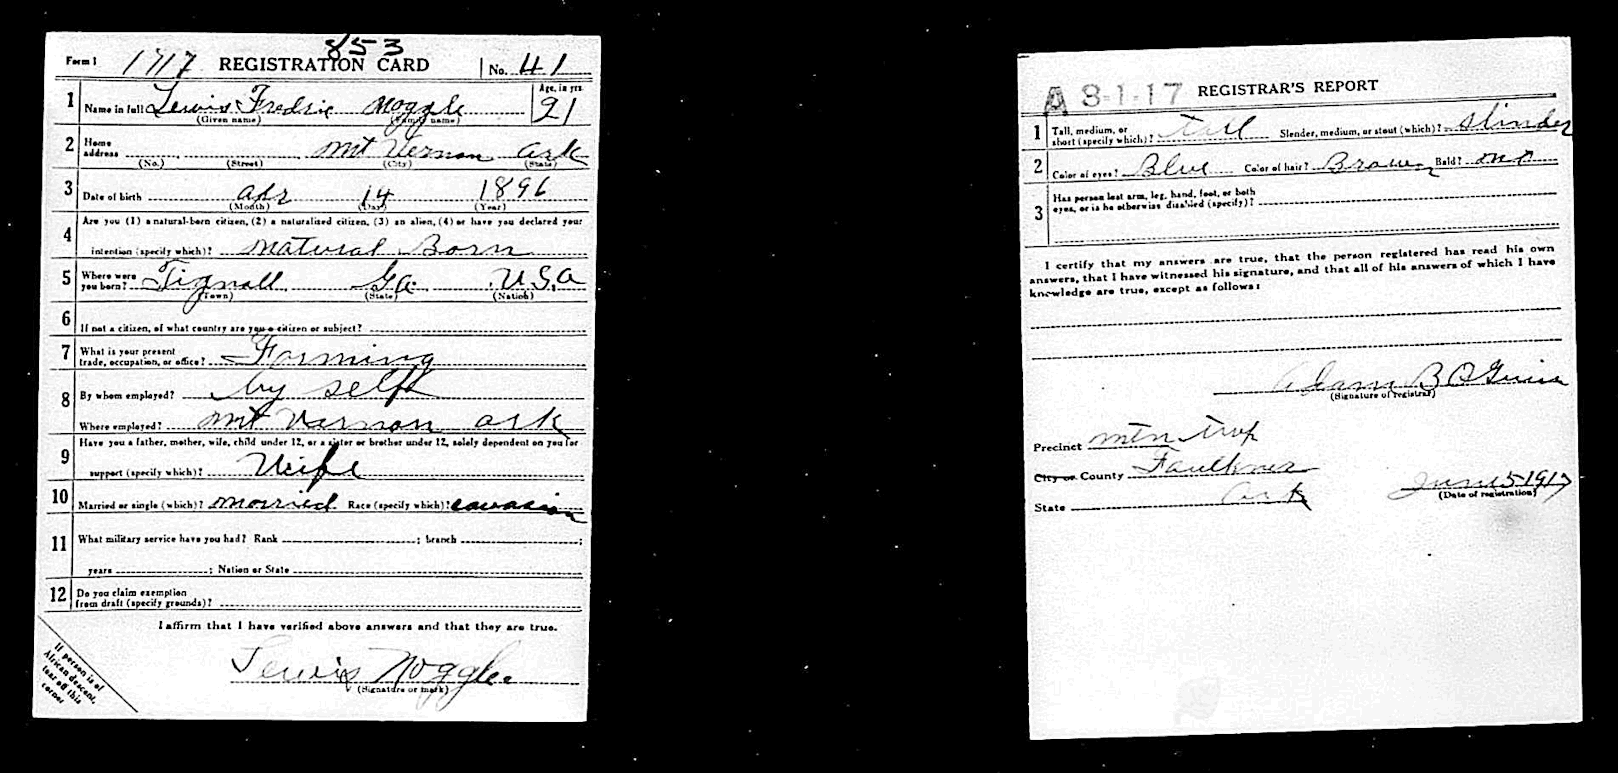 853
Form 1 1717 REGISTRATION CARD No. 41
1 Name in full Lewis Fredric Noggle Age, in yrs. 21
(Given name) (Family name)
2 Home address Mt Vernon Ark
(No.) (Street) (City) (State)
3 Date of birth Apr 14 1896
(Month) (Day) (Year)
4 Are you (1) a natural-born citizen, (2) a naturalized citizen, (3) an alien, (4) or have you declared your
intention (specify which)? Natural Born
5 Where were you born? Tignall Ga. U.S.A
(Town) (State) (Nation)
6 If not a citizen, of what country are you a citizen or subject?
7 What is your present trade, occupation, or office? Farming
8 By whom employed? by self
Where employed? Mt Varnon Ark
9 Have you a father, mother, wife, child under 12, or a sister or brother under 12, solely dependent on you for
support (specify which)? Wife
10 Married or single (which)? Married Race (specify which)? Cavasian
11 What military service have you had? Rank ; branch ;
years ; Nation or State
12 Do you claim exemption
from draft (specify grounds)?
I affirm that I have verified above answers and that they are true.
Lewis Noggle
(Signature or mark)
If person is of
African descent,
tear off this
corner
A 3-1-17 REGISTRAR'S REPORT
1 Tall, medium, or short (specify which)? Tall Slender, medium, or stout (which)? Slinder
2 Color of eyes? Blue Color of hair? Brown Bald? No
3 Has person lost arm, leg, hand, foot, or both
eyes, or is he otherwise disabled (specify)?
I certify that my answers are true, that the person registered has read his own
answers, that I have witnessed his signature, and that all of his answers of which I have
knowledge are true, except as follows:
Adam B
(Signature of registrar)
Precinct Mtn
City or County Faulkner
State Ark June 5-1917
(Date of registration)